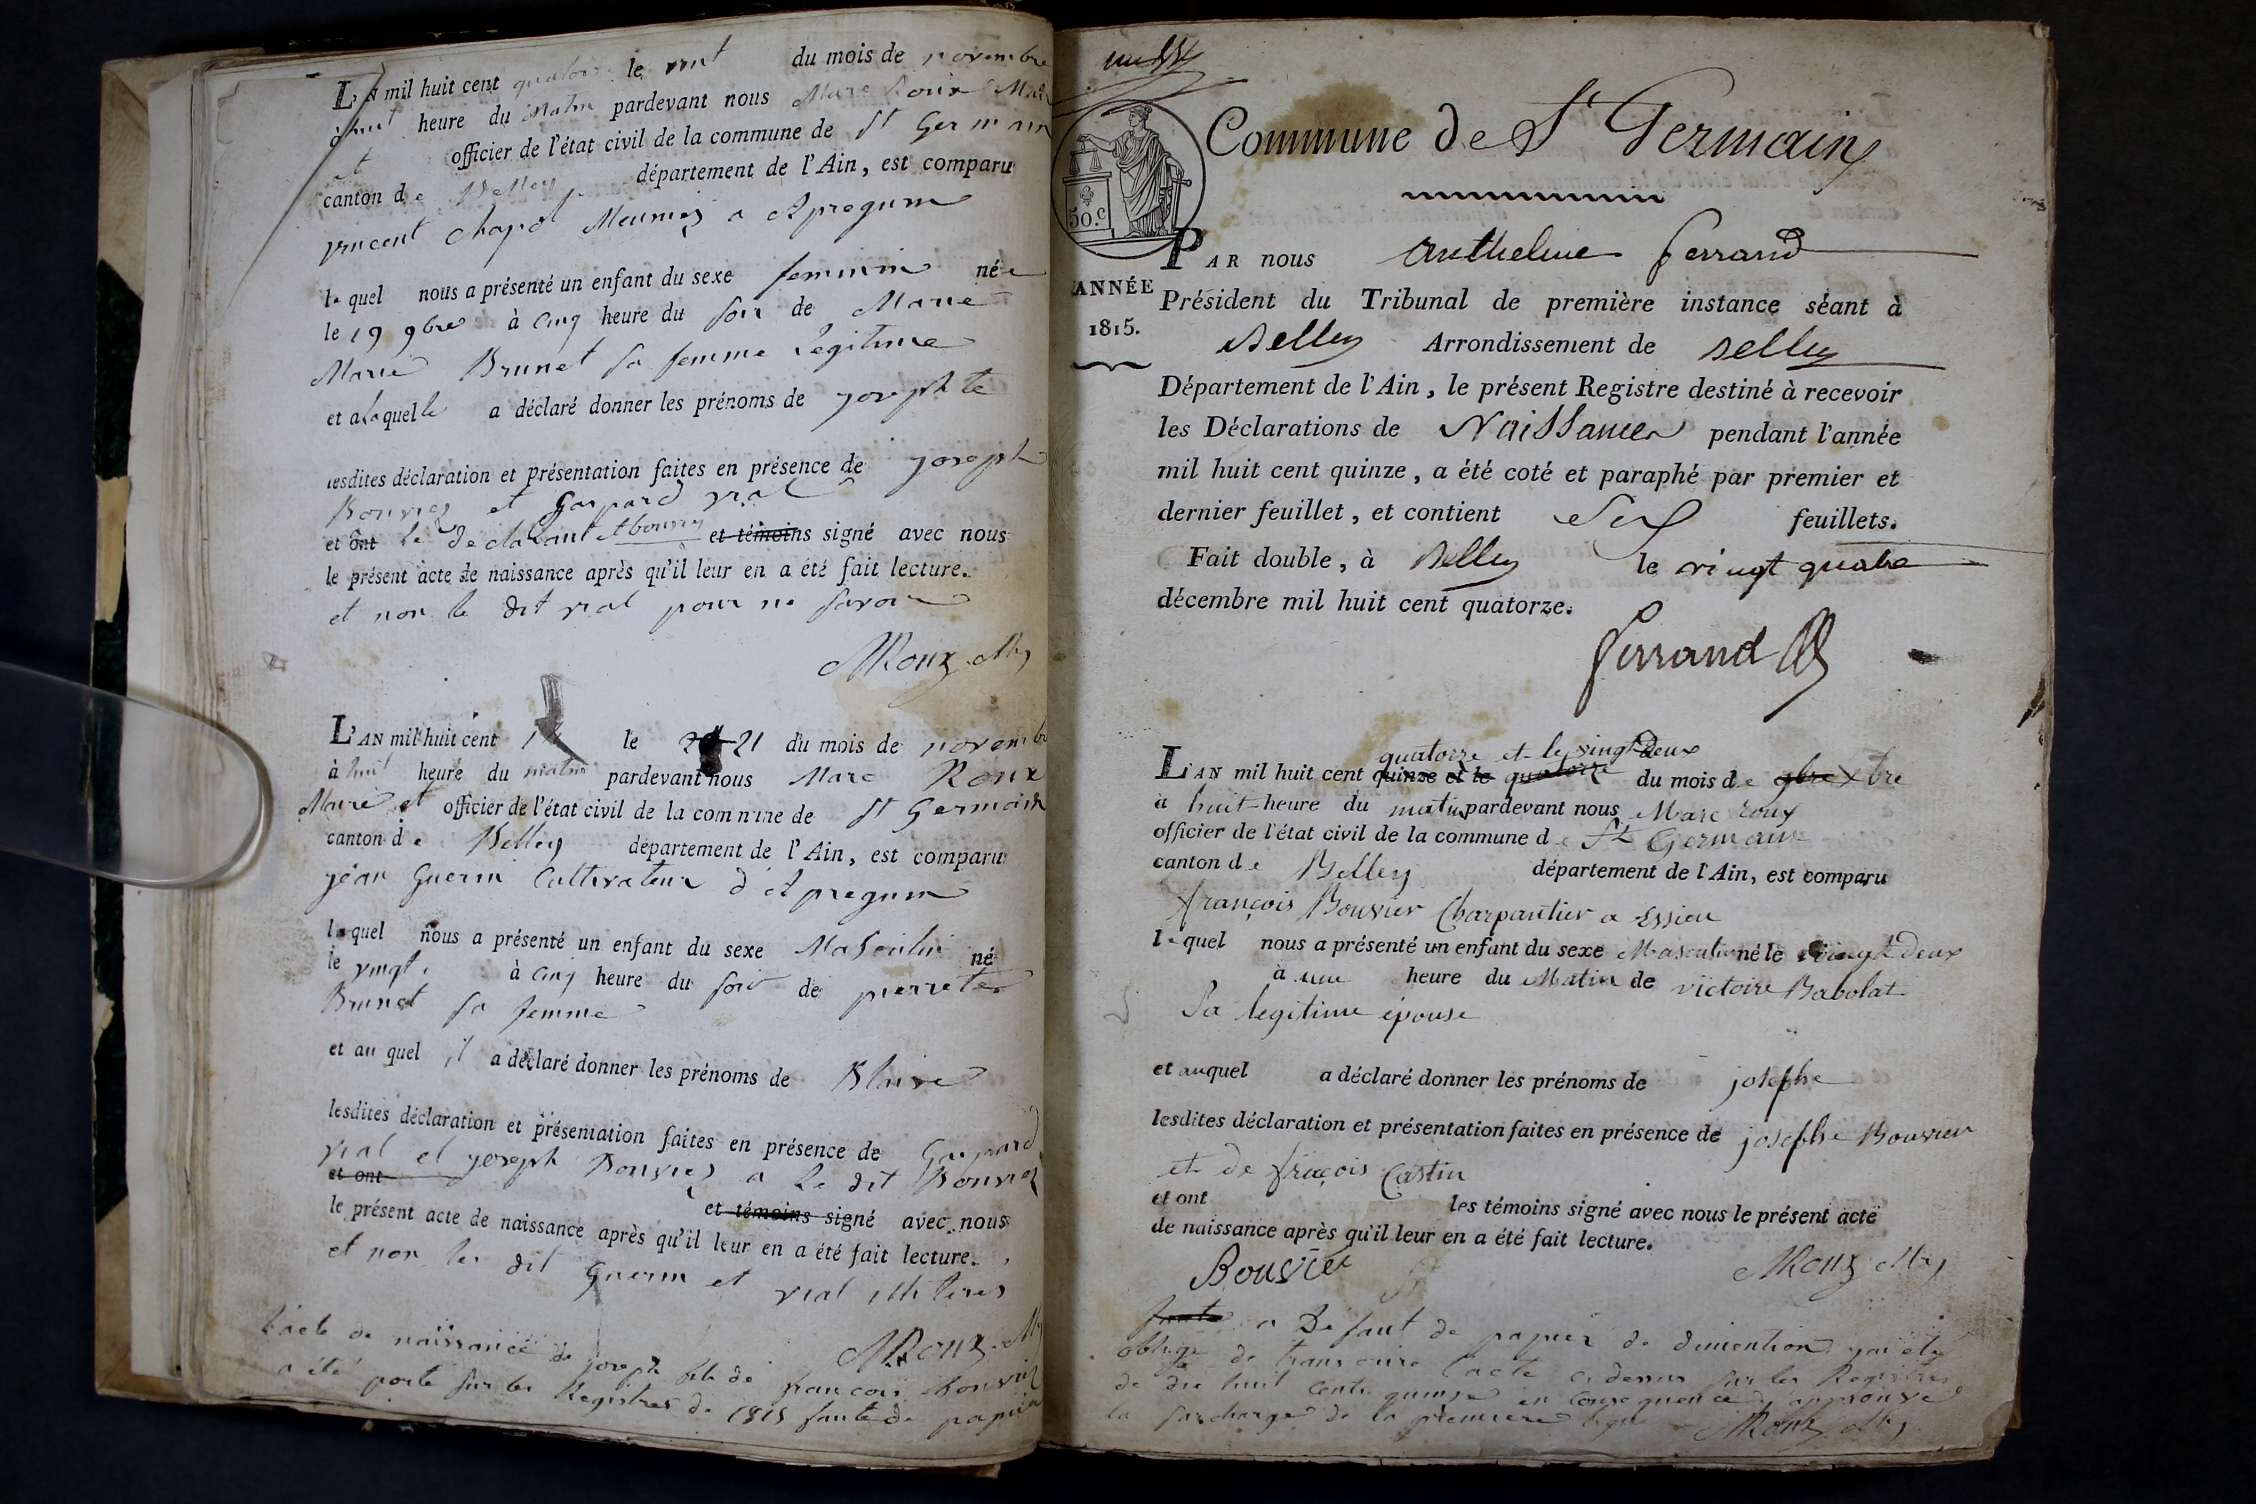 L'AN mil huit cent quatorze le vint du mois de novembre
à huit heure du matin pardevant nous Marc Roux Maire
et officier de l'état civil de la commune de St Germain
canton de Belley département de l'Ain, est comparu
vincent chapot Meunier a
lequel nous a présenté un enfant du sexe feminin née
le 19 9bre à cinq heure du soir de Marie
Marie Brunet sa femme legitime
et a laquelle a déclaré donner les prénoms de josephte
lesdites déclaration et présentation faites en présence de joseph
Bouvier et Gaspard vial
et ont le declarant et bouvier et témoins signé avec nous
le présent acte de naissance après qu'il leur en a été fait lecture.
et non le dit vial pour ne savoir
MRoux
L'AN mil huit cent 14 le 21 du mois de novembre
à huit heure du matin pardevant nous Marc Roux
Maire et officier de l'état civil de la commune de St Germain
canton de Belley département de l'Ain, est comparu
jean Guerin Cultivateur
lequel nous a présenté un enfant du sexe Masculin né
le vingt à cinq heure du soir de pierrette
Brunet sa femme
et au quel il a déclaré donner les prénoms de Blaise
lesdites déclaration et présentation faites en présence de Gaspard
vial et joseph Bouvier a le dit Bouvier
et ont et témoins signé avec nous
le présent acte de naissance après qu'il leur en a été fait lecture.
et non les dit Guerin et vial illiteres
MRoux
L'acte de naissance de joseph fils de francois Bouvier
a été porté sur les Registres de 1815 faute de papier
Commune de St Germain
50.c
PAR nous Anthelme ferrand
ANNÉE
1815.
Président du Tribunal de première instance séant à
Belley Arrondissement de Belley
Département de l'Ain, le présent Registre destiné à recevoir
les Déclarations de Naissances pendant l'année
mil huit cent quinze, a été coté et paraphé par premier et
dernier feuillet, et contient Six feuillets.
Fait double, à Belley le vingt quatre
décembre mil huit cent quatorze.
ferrand
quatorze et le vingt Deux
L'AN mil huit cent quinze et le quatorze du mois de 9bre Xbre
à huit heure du matin pardevant nous Marc roux
officier de l'état civil de la commune de St Germain
canton de Belley département de l'Ain, est comparu
françois Bouvier Charpantier a Essieu
lequel nous a présenté un enfant du sexe Masculin né le vingt Deux
à une heure du Matin de victoire Babolat
Sa legitime épouse
et auquel a déclaré donner les prénoms de josephe
lesdites déclaration et présentation faites en présence de josephe Bouvier
et de fraçois Castin
et ont les témoins signé avec nous le présent acte
de naissance après qu'il leur en a été fait lecture.
Bouvier MRoux
faute a Défaut de papier de dimention jai eté
obligé de transcrire l'acte ci dessus sur les Registres
de dix huit cents quinze en consequence j'approuve
la surcharge de la premiere ligne MRoux